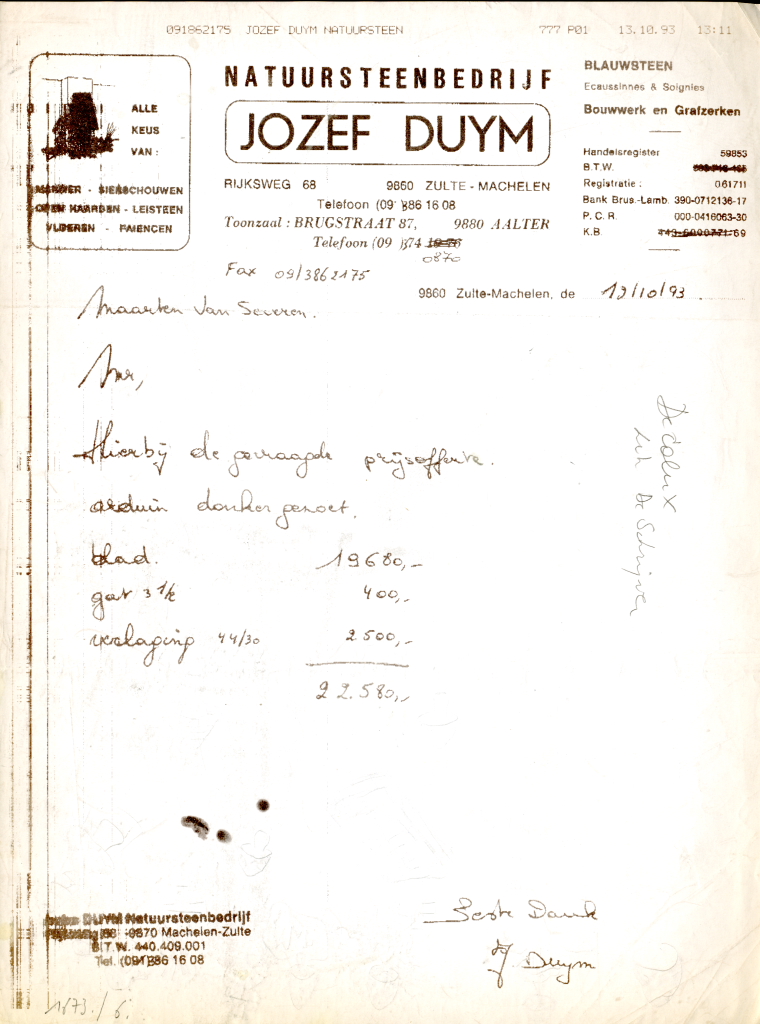 091862175 JOZEF DUYM NATUURSTEEN 777 P01 13.10.93 13:11
ALLE
KEUS
VAN :
MARMER - SIERSCHOUWEN
OPEN HAARDEN - LEISTEEN
VLOEREN - FAIENCEN
NATUURSTEENBEDRIJF
JOZEF DUYM
RIJKSWEG 68 9860 ZULTE - MACHELEN
Telefoon (09) 386 16 08
Toonzaal : BRUGSTRAAT 87, 9880 AALTER
Telefoon (09) 374
0870
Fax 09/3862175
BLAUWSTEEN
Ecaussinnes & Soignies
Bouwwerk en Grafzerken
Handelsregister 59853
B.T.W.
Registratie : 061711
Bank Brus.-Lamb. 390-0712136-17
P.C.R. 000-0416063-30
K.B.
9860 Zulte-Machelen, de 12/10/93.
Maarten Van Severen.
Mr,
Hierbij de gevraagde prijsofferte.
arduin donker gezoet.
blad. 19680,-
gat 3 1/2 400,-
verlaging 44/30 2.500,-
22.580,-
Decolux
De Schrijver
Beste Dank
J Duym
DUYM Natuursteenbedrijf
68 -9870 Machelen-Zulte
B.T.W. 440.409.001
Tel. (091) 386 16 08
1873./6.